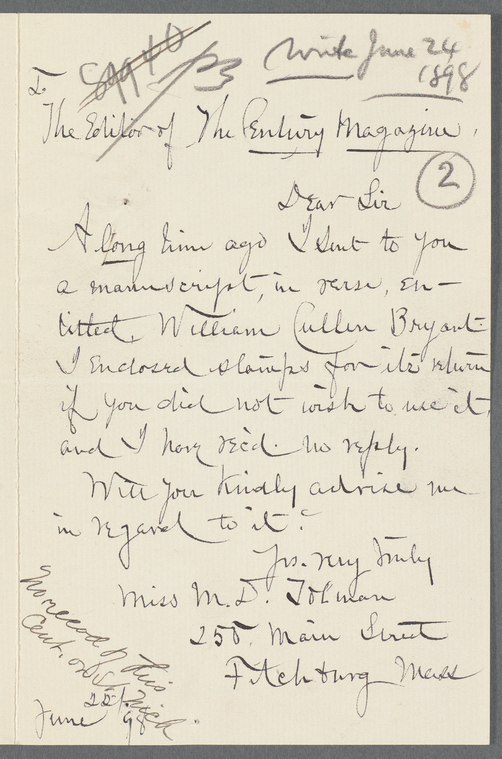 Write June 24
1898
To
The Editor of The Century Magazine,
2
Dear Sir
A long time ago I sent to you
a manuscript, in verse, en-
titled, William Cullen Bryant.
I enclosed stamps for its return
if you did not wish to use it,
and I have rec'd. no reply.
Will you kindly advise me
in regard to it?
Yrs. very truly
Miss M. D. Tolman
255. Main Street
Fitchburg Mass
No record of this
Cent. or St. Nich.
June 22/98